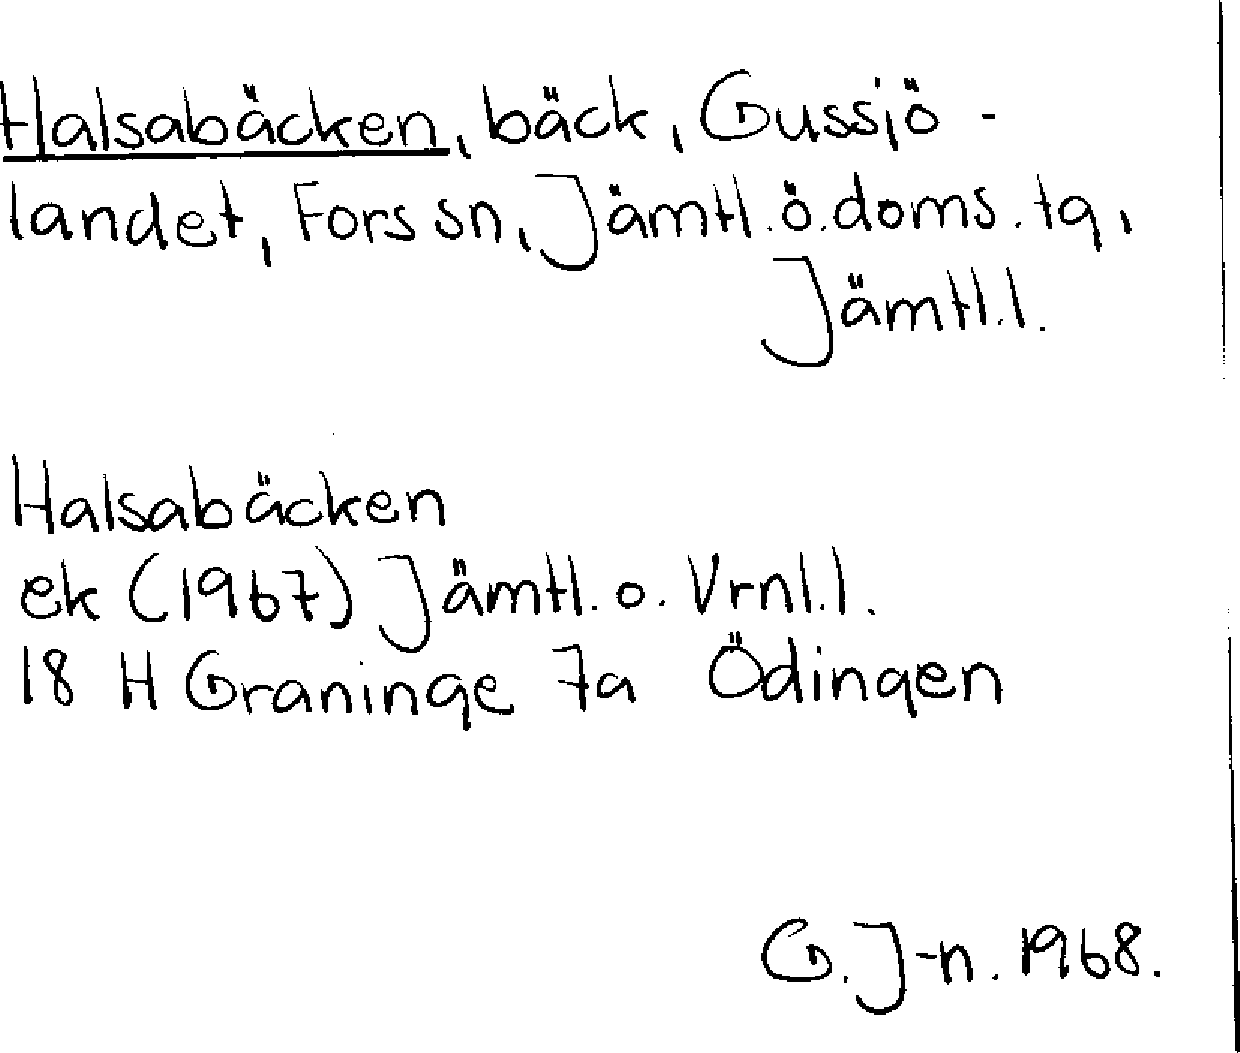 Halsabäcken, bäck, Gussjö-
landet, Fors sn, Jämtl.ö.doms.tg,
Jämtl.l.
Halsabäcken
ek (1967) Jämtl. o. Vrnl.l.
18 H Graninge 7a Ödingen
G. J-n. 1968.